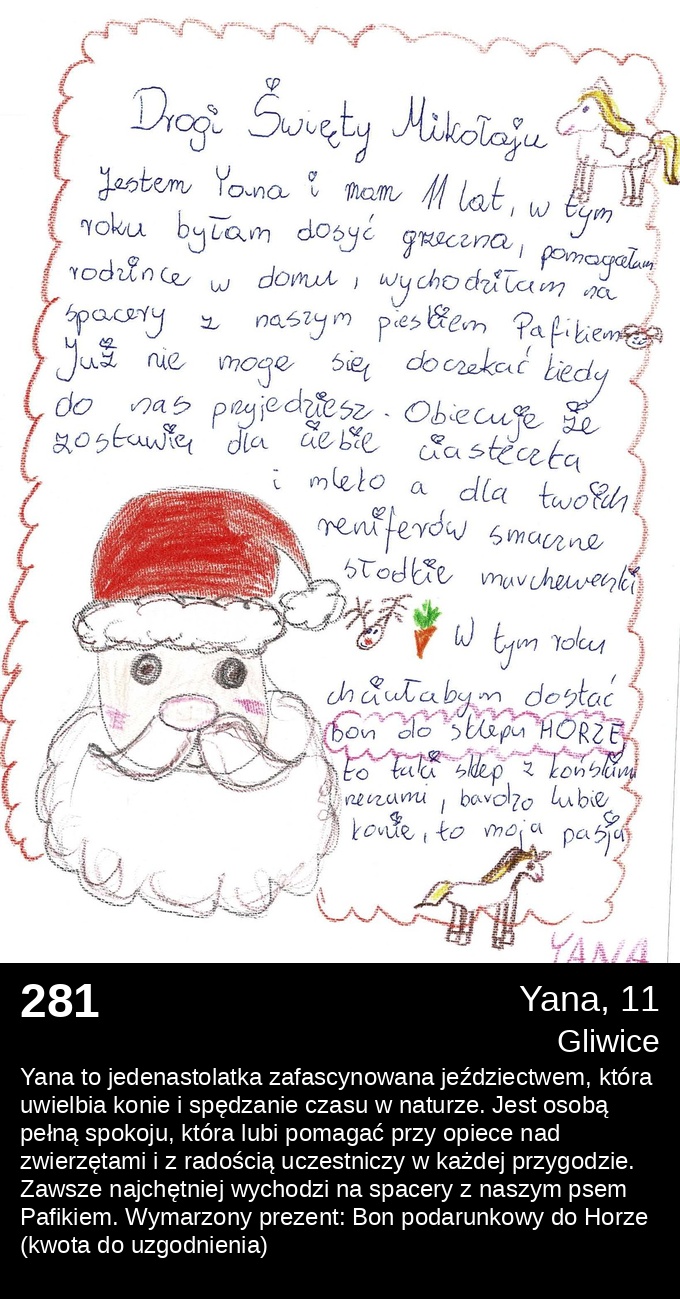 Drogi Święty Mikołaju
Jestem Yana i mam 11 lat, w tym
roku byłam dosyć grzeczna, pomagałam
rodzince w domu, wychodziłam na
spacery z naszym pieskiem Pafikiem
Już nie mogę się doczekać kiedy
do nas przyjedziesz. Obiecuję że
zostawię dla ciebie ciasteczka
i mleko a dla twoich
reniferów smaczne
słodkie marcheweczki
W tym roku
chciałabym dostać
bon do sklepu HORZE
to taki sklep z końskimi
rzeczami, bardzo lubie
konie, to moja pasja
YANA
281
Yana, 11
Gliwice
Yana to jedenastolatka zafascynowana jeździectwem, która
uwielbia konie i spędzanie czasu w naturze. Jest osobą
pełną spokoju, która lubi pomagać przy opiece nad
zwierzętami i z radością uczestniczy w każdej przygodzie.
Zawsze najchętniej wychodzi na spacery z naszym psem
Pafikiem. Wymarzony prezent: Bon podarunkowy do Horze
(kwota do uzgodnienia)